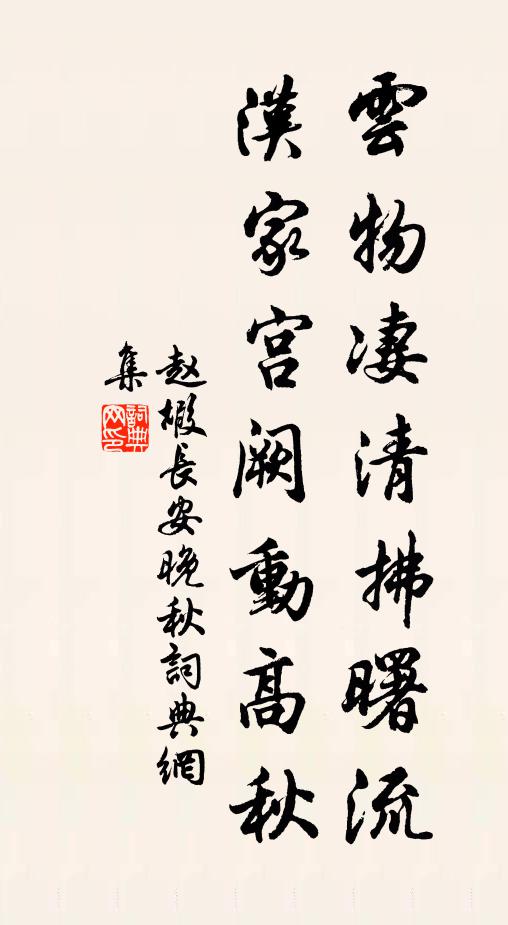 雲物凄清拂曙流
漢家宫闕動高秋
赵嘏長安晚秋詞典網
集
詞典
网印